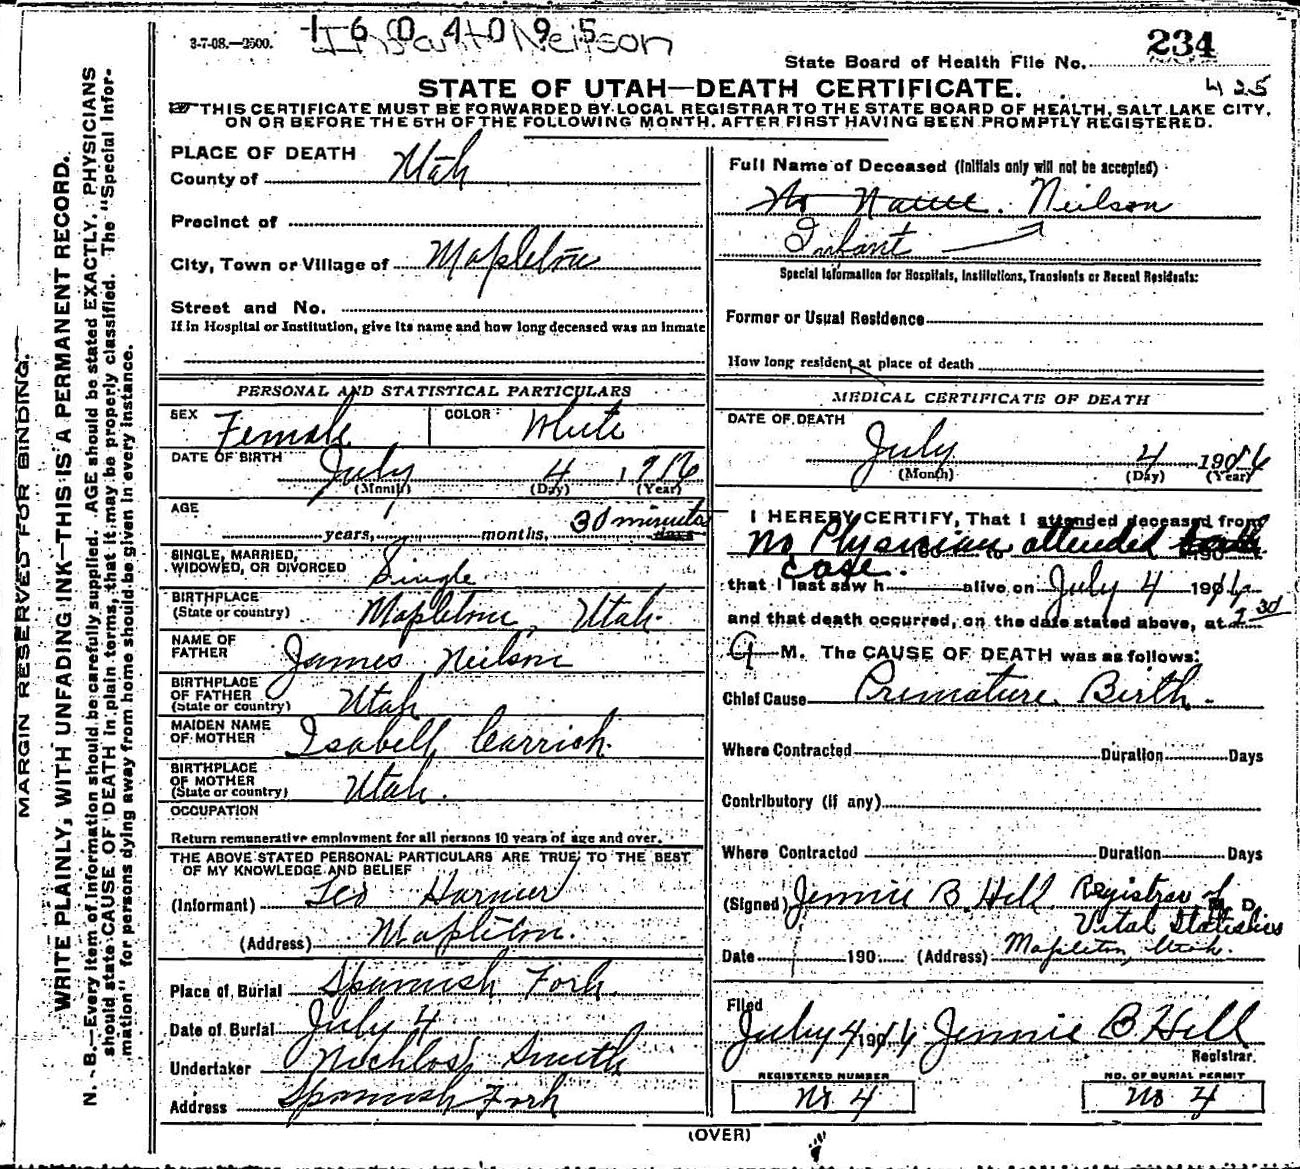 3-7-08.—2500.
1 6 0 4 0 9 5
Infant Neilson
State Board of Health File No. 234
425
STATE OF UTAH—DEATH CERTIFICATE.
THIS CERTIFICATE MUST BE FORWARDED BY LOCAL REGISTRAR TO THE STATE BOARD OF HEALTH, SALT LAKE CITY,
ON OR BEFORE THE 5TH OF THE FOLLOWING MONTH, AFTER FIRST HAVING BEEN PROMPTLY REGISTERED.
MARGIN RESERVED FOR BINDING.
WRITE PLAINLY, WITH UNFADING INK—THIS IS A PERMANENT RECORD.
N. B.—Every item of information should be carefully supplied. AGE should be stated EXACTLY. PHYSICIANS
should state CAUSE OF DEATH in plain terms, that it may be properly classified. The "Special Infor-
mation" for persons dying away from home should be given in every instance.
PLACE OF DEATH
County of Utah
Precinct of
City, Town or Village of Mapleton
Street and No.
If in Hospital or Institution, give its name and how long deceased was an inmate
PERSONAL AND STATISTICAL PARTICULARS
SEX Female COLOR White
DATE OF BIRTH July 4 1916
(Month) (Day) (Year)
AGE
years, months, 30 minutes days
SINGLE, MARRIED,
WIDOWED, OR DIVORCED Single
BIRTHPLACE
(State or country) Mapleton, Utah.
NAME OF
FATHER James Neilson
BIRTHPLACE
OF FATHER
(State or country) Utah
MAIDEN NAME
OF MOTHER Isabell Carrick.
BIRTHPLACE
OF MOTHER
(State or country) Utah.
OCCUPATION
Return remunerative employment for all persons 10 years of age and over.
THE ABOVE STATED PERSONAL PARTICULARS ARE TRUE TO THE BEST
OF MY KNOWLEDGE AND BELIEF
(Informant) Leo Harmer
(Address) Mapleton.
Place of Burial Spanish Fork.
Date of Burial July 4
Undertaker Smith
Address Spanish Fork
Full Name of Deceased (Initials only will not be accepted)
No Name. Neilson
Infant
Special Information for Hospitals, Institutions, Transients or Recent Residents:
Former or Usual Residence
How long resident at place of death
MEDICAL CERTIFICATE OF DEATH
DATE OF DEATH
July 4 1916
(Month) (Day) (Year)
I HEREBY CERTIFY, That I attended deceased from
No Physician attended
case.
that I last saw h alive on July 4 1916
and that death occurred, on the date stated above, at 30
A M. The CAUSE OF DEATH was as follows:
Chief Cause Premature Birth.
Where Contracted Duration Days
Contributory (if any)
Where Contracted Duration Days
(Signed) Jennie B. Hill Registrar of M. D.
Vital Statistics
Date 190 (Address) Mapleton, Utah.
Filed
July 4 1916 Jennie B Hill
Registrar.
REGISTERED NUMBER
No 4
NO. OF BURIAL PERMIT
No 4
(OVER)